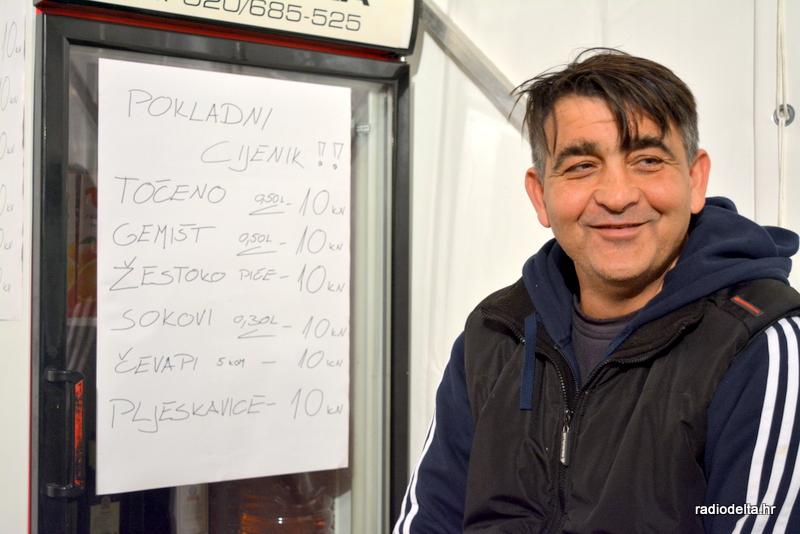 020/685-525
POKLADNI
CIJENIK !!
TOČENO 0,50L - 10 KN
GEMIŠT 0,50L - 10 KN
ŽESTOKO PIĆE - 10 KN
SOKOVI 0,30L - 10 KN
ČEVAPI 5 KOM - 10 KN
PLJESKAVICE - 10 KN
radiodelta.hr